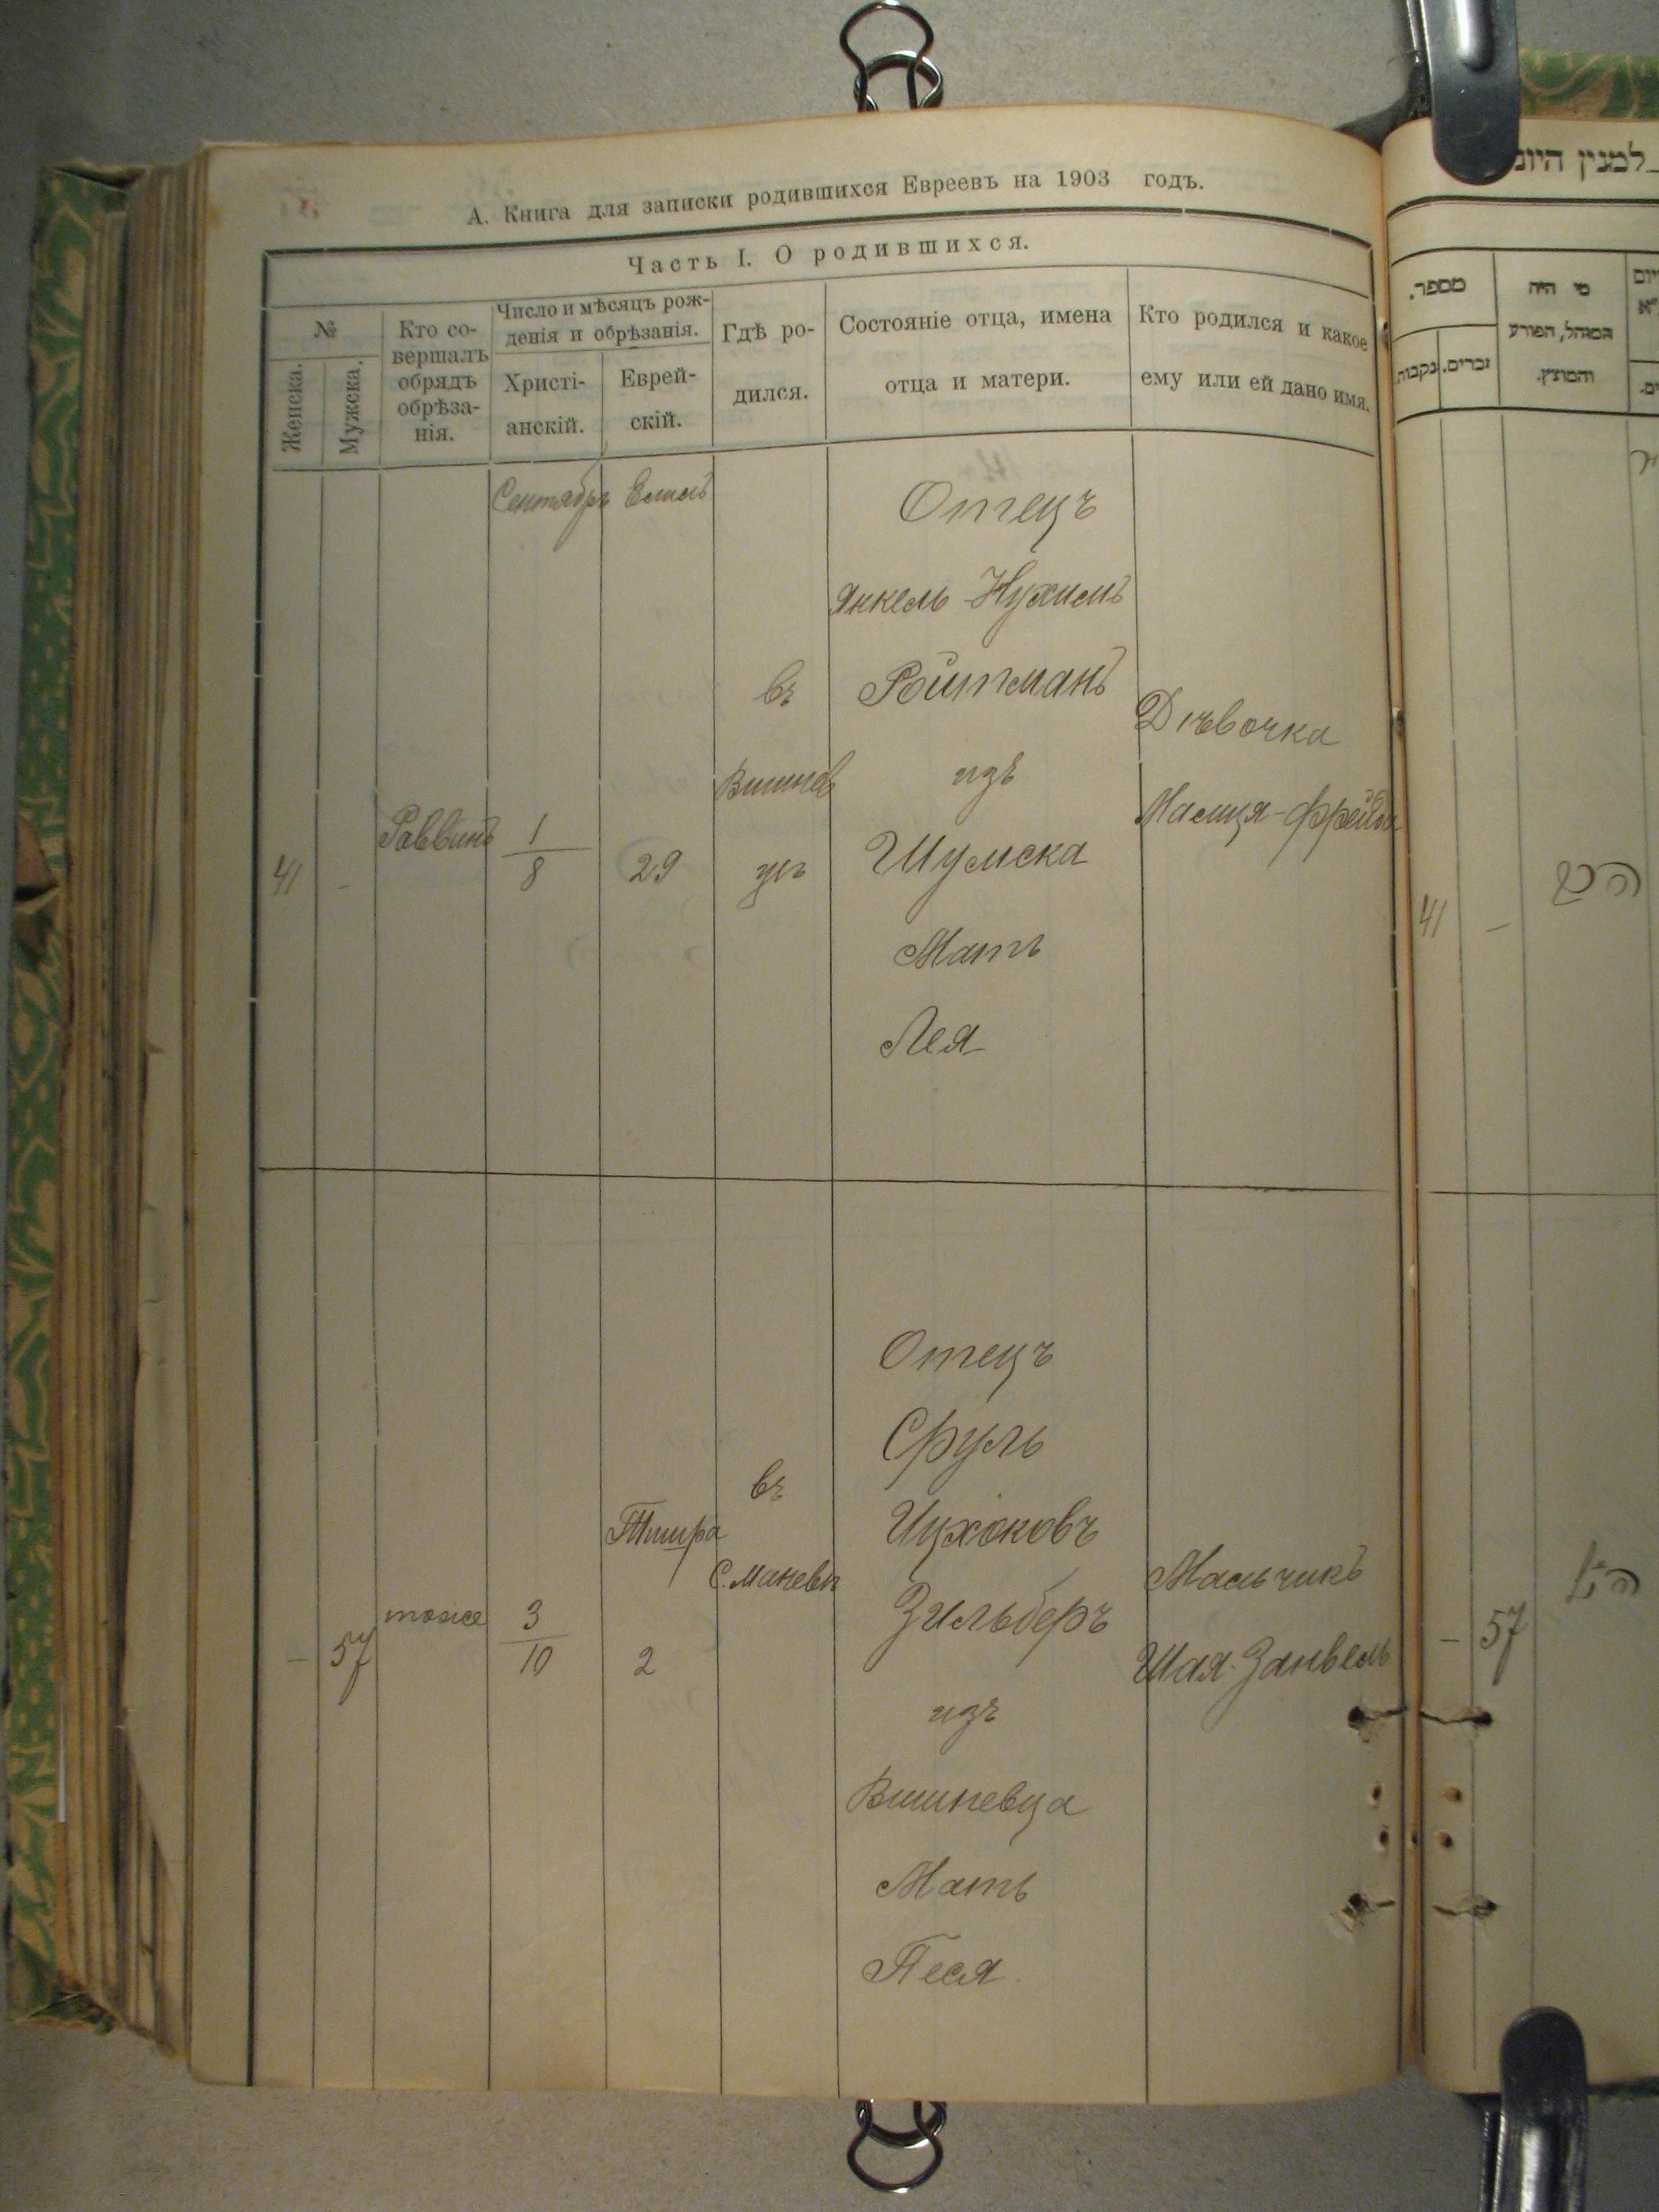 А. Книга для записки родившихся Евреевъ на 1903 годъ.
Часть I. О родившихся.
№
Женска.
Мужска.
Кто со-
вершалъ
обрядъ
обрѣза-
нія.
Число и мѣсяцъ рож-
денія и обрѣзанія.
Христі-
анскій.
Еврей-
скій.
Гдѣ ро-
дился.
Состояніе отца, имена
отца и матери.
Кто родился и какое
ему или ей дано имя.
Сентябрь
41
-
Раввинъ
1
8
29
въ
Вишнев
цѣ
Отецъ
Янкель Нухимъ
Ройтманъ
изъ
Шумска
Мать
Лея
Дѣвочка
-
57
тоже
3
10
Тишра
2
въ
Отецъ
Сруль
Ицхоковъ
Зильберъ
изъ
Вишневца
Мать
Песя
Мальчикъ
Шая-Занвель
למנין היונ
מספר.
נקבות.
זכרים.
מי היה
המוהל, הפורע
והמוצץ.
41
-
-
57